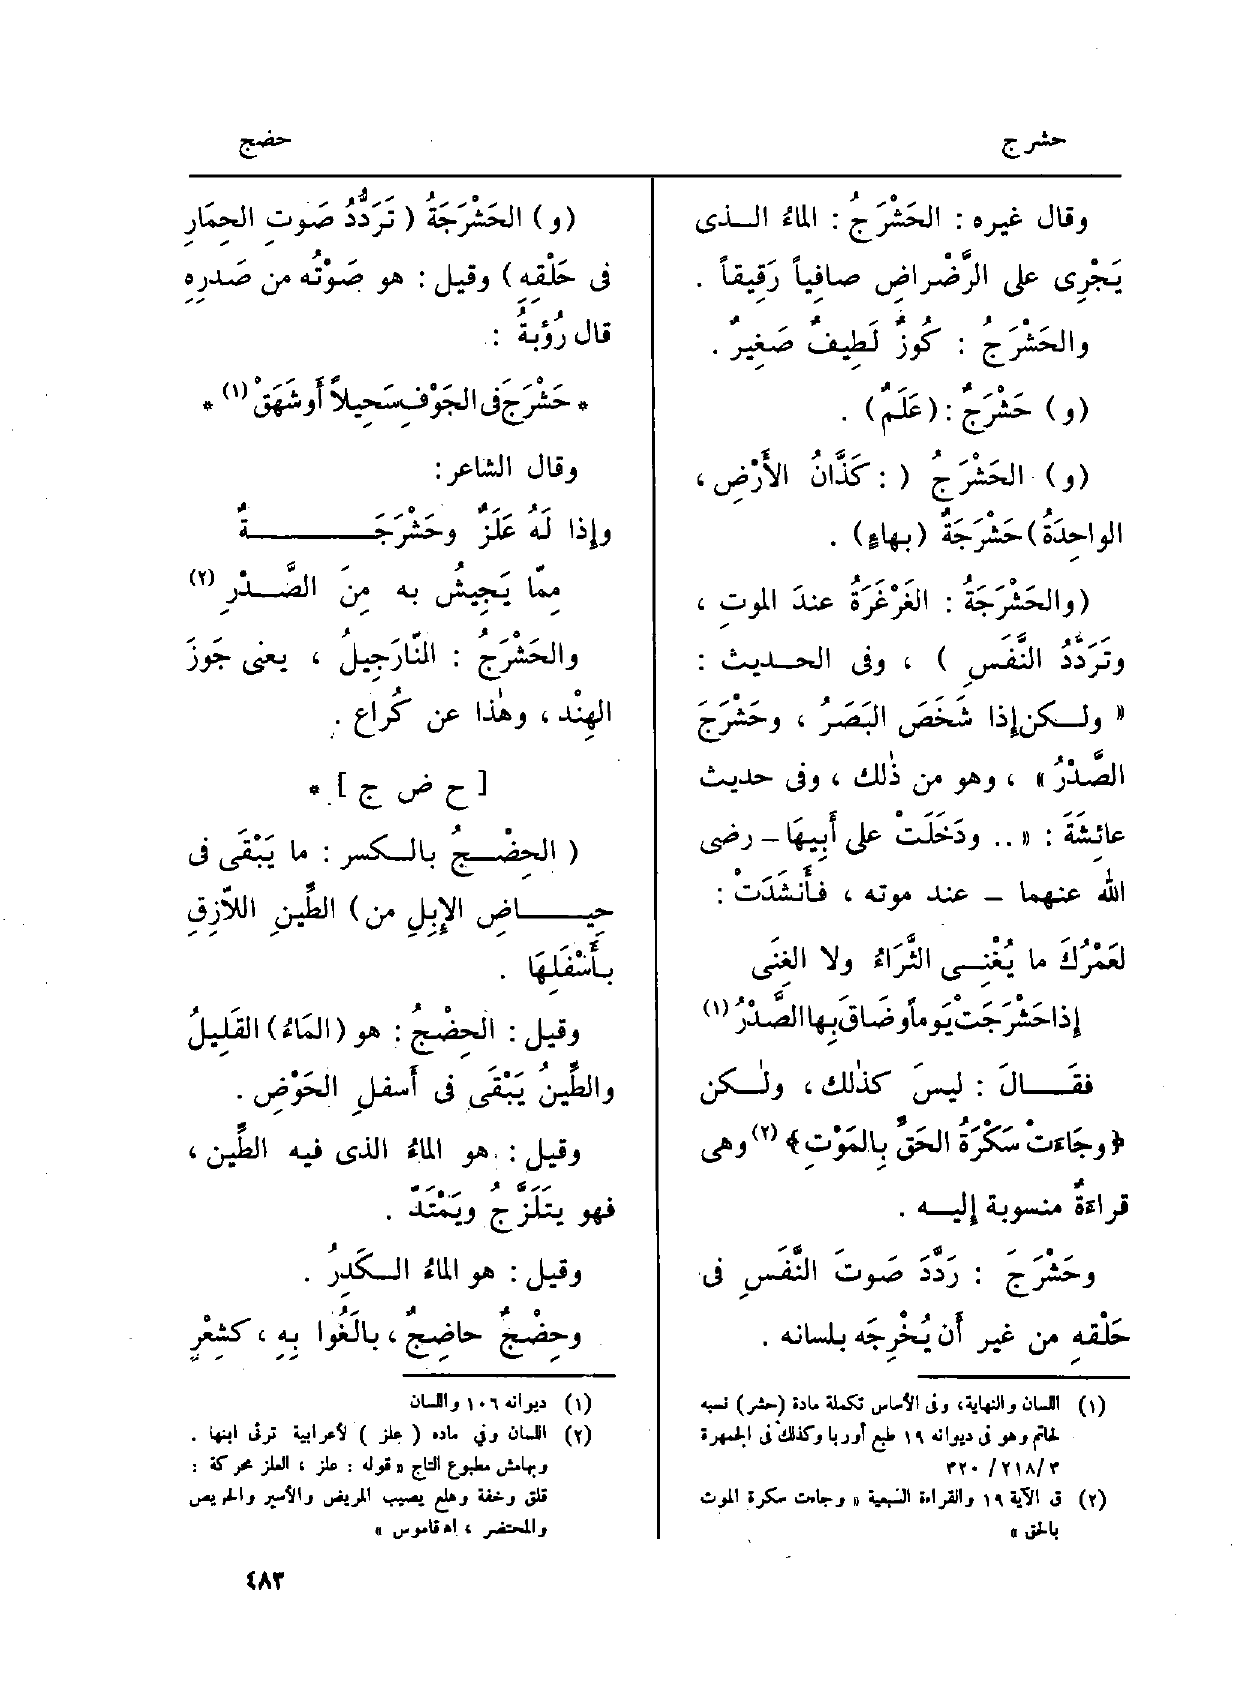 حشرج
حضج
وقال غيره : الحَشْرَجُ : الماءُ الـــذى
يَجْرِى على الرَّضْراضِ صافِياً رَقِيقاً .
والحَشْرَجُ : كُوزٌ لَطِيفٌ صَغِيرٌ .
(و) حَشْرَجٌ : (عَلَمٌ) .
(و) الحَشْرَجُ ( : كَذَّانُ الأَرْضِ ،
الواحِدَةُ) حَشْرَجَةٌ (بهاءٍ) .
(والحَشْرَجَةُ : الغَرْغَرَةُ عندَ الموتِ ،
وتَرَدُّدُ النَّفَسِ ) ، وفى الحــديث :
« ولــكن إذا شَخَصَ البَصَرُ ، وحَشْرَجَ
الصَّدْرُ » ، وهو من ذٰلك ، وفى حديث
عائِشَةَ : « .. ودَخَلَتْ على أَبِيهَا – رضى
الله عنهما – عند موته ، فأَنشَدَتْ :
لعَمْرُكَ ما يُغْنِــى الثَّرَاءُ ولا الغِنَى
إذا حَشْرَجَتْ يَوماً وضَاقَ بِها الصَّدْرُ (١)
فقَـــالَ : ليسَ كذٰلك ، ولٰــكن
﴿وجَاءَتْ سَكْرَةُ الحَقِّ بِالمَوْتِ﴾ (٢) وهى
قراءَةٌ منسوبة إليــه .
وحَشْرَجَ : رَدَّدَ صَوتَ النَّفَسِ فى
حَلْقهِ من غير أَن يُخْرِجَه بلسانه .
(١) اللسان والنهاية، وفى الأساس تكملة مادة (حشر) نسبه
لحاتم وهو فى ديوانه ١٩ طبع أوربا وكذلك فى الجمهرة
٣/٢١٨/ ٣٢٠
(٢) ق الآية ١٩ والقراءة السبعية « وجاءت سكرة الموت
بالحق »
(و) الحَشْرَجَةُ ( تَرَدُّدُ صَوتِ الحِمَارِ
فى حَلْقِهِ) وقيل : هو صَوْتُه من صَدرِهِ
قال رُؤبةُ :
* حَشْرَجَ فى الجَوْفِ سَحِيلاً أَو شَهَقْ (١) *
وقال الشاعر :
وإذا لَهُ عَلَزٌ وحَشْرَجَـــــــــةٌ
مِمّا يَجِيشُ به مِنَ الصَّــدْرِ (٢)
والحَشْرَجُ : النّارَجِيلُ ، يعنى جَوزَ
الهِنْد ، وهٰذا عن كُراع .
[ ح ض ج ] *
( الحِضْــجُ بالــكسر : ما يَبْقَى فى
حِيـــــاضِ الإِبِلِ من) الطِّينِ اللاَّزِقِ
بأَسْفَلِهَا .
وقيل : الحِضْجُ : هو (المَاءُ) القَلِيلُ
والطِّينُ يَبْقَى فى أَسفلِ الحَوْضِ .
وقيل : هو الماءُ الذى فيه الطِّين ،
فهو يتَلَزَّجُ ويَمْتَدّ .
وقيل : هو الماءُ الــكَدِرُ .
وحِضْجٌ حاضِجٌ ، بالَغُوا بِهِ ، كشِعْرٍ
(١) ديوانه ١٠٦ واللسان
(٢) اللسان وفي ماده ( علز ) لأعرابية ترقى ابنها .
وبهامش مطبوع التاج « قوله : علز ، العلز محركة :
قلق وخفة وهلع يصيب المريض والأسير والحريص
والمحتضر ، اه قاموس »
٤٨٣